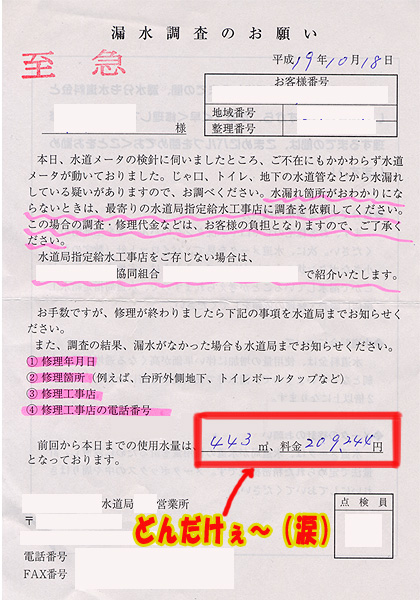 漏水調査のお願い
至急
平成19年10月18日
お客様番号
地域番号
整理番号
様
本日、水道メータの検針に伺いましたところ、ご不在にもかかわらず水道
メータが動いておりました。じゃ口、トイレ、地下の水道管などから水漏れ
している疑いがありますので、お調べください。水漏れ箇所がおわかりにな
らないときは、最寄りの水道局指定給水工事店に調査を依頼してください。
この場合の調査・修理代金などは、お客様の負担となりますので、ご了承く
ださい。
水道局指定給水工事店をご存じない場合は、
協同組合 で紹介いたします。
お手数ですが、修理が終わりましたら下記の事項を水道局までお知らせく
ださい。
また、調査の結果、漏水がなかった場合も水道局までお知らせください。
① 修理年月日
② 修理箇所（例えば、台所外側地下、トイレボールタップなど）
③ 修理工事店
④ 修理工事店の電話番号
前回から本日までの使用水量は、443㎥、料金209,244円
となっております。
どんだけぇ～（涙）
水道局 営業所
〒
電話番号
FAX番号
点検員